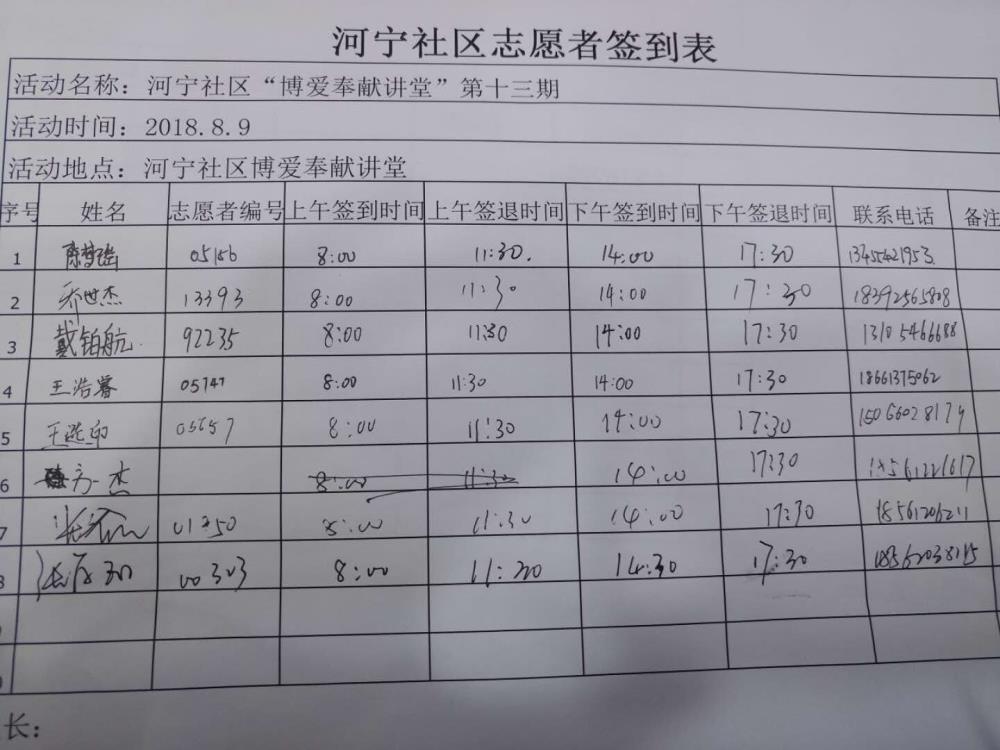 河宁社区志愿者签到表
活动名称：河宁社区“博爱奉献讲堂”第十三期
活动时间：2018.8.9
活动地点：河宁社区博爱奉献讲堂
序号 姓名 志愿者编号 上午签到时间 上午签退时间 下午签到时间 下午签退时间 联系电话 备注
1 陈梦瑶 05186 8:00 11:30. 14:00 17:30
2 乔世杰 13393 8:00 11:30 14:00 17:30 18392565808
3 戴铂航 92235 8:00 11:30 14:00 17:30 13105466688
4 王浩睿 05747 8:00 11:30 14:00 17:30 18661375062
5 8:00 11:30 14:00 17:30 15066028179
6 方一杰 8:00 11:30 14:00 17:30
7 8:00 11:30 14:00 17:30 18561206211
8 00303 8:00 11:30 14:30 17:30
长：